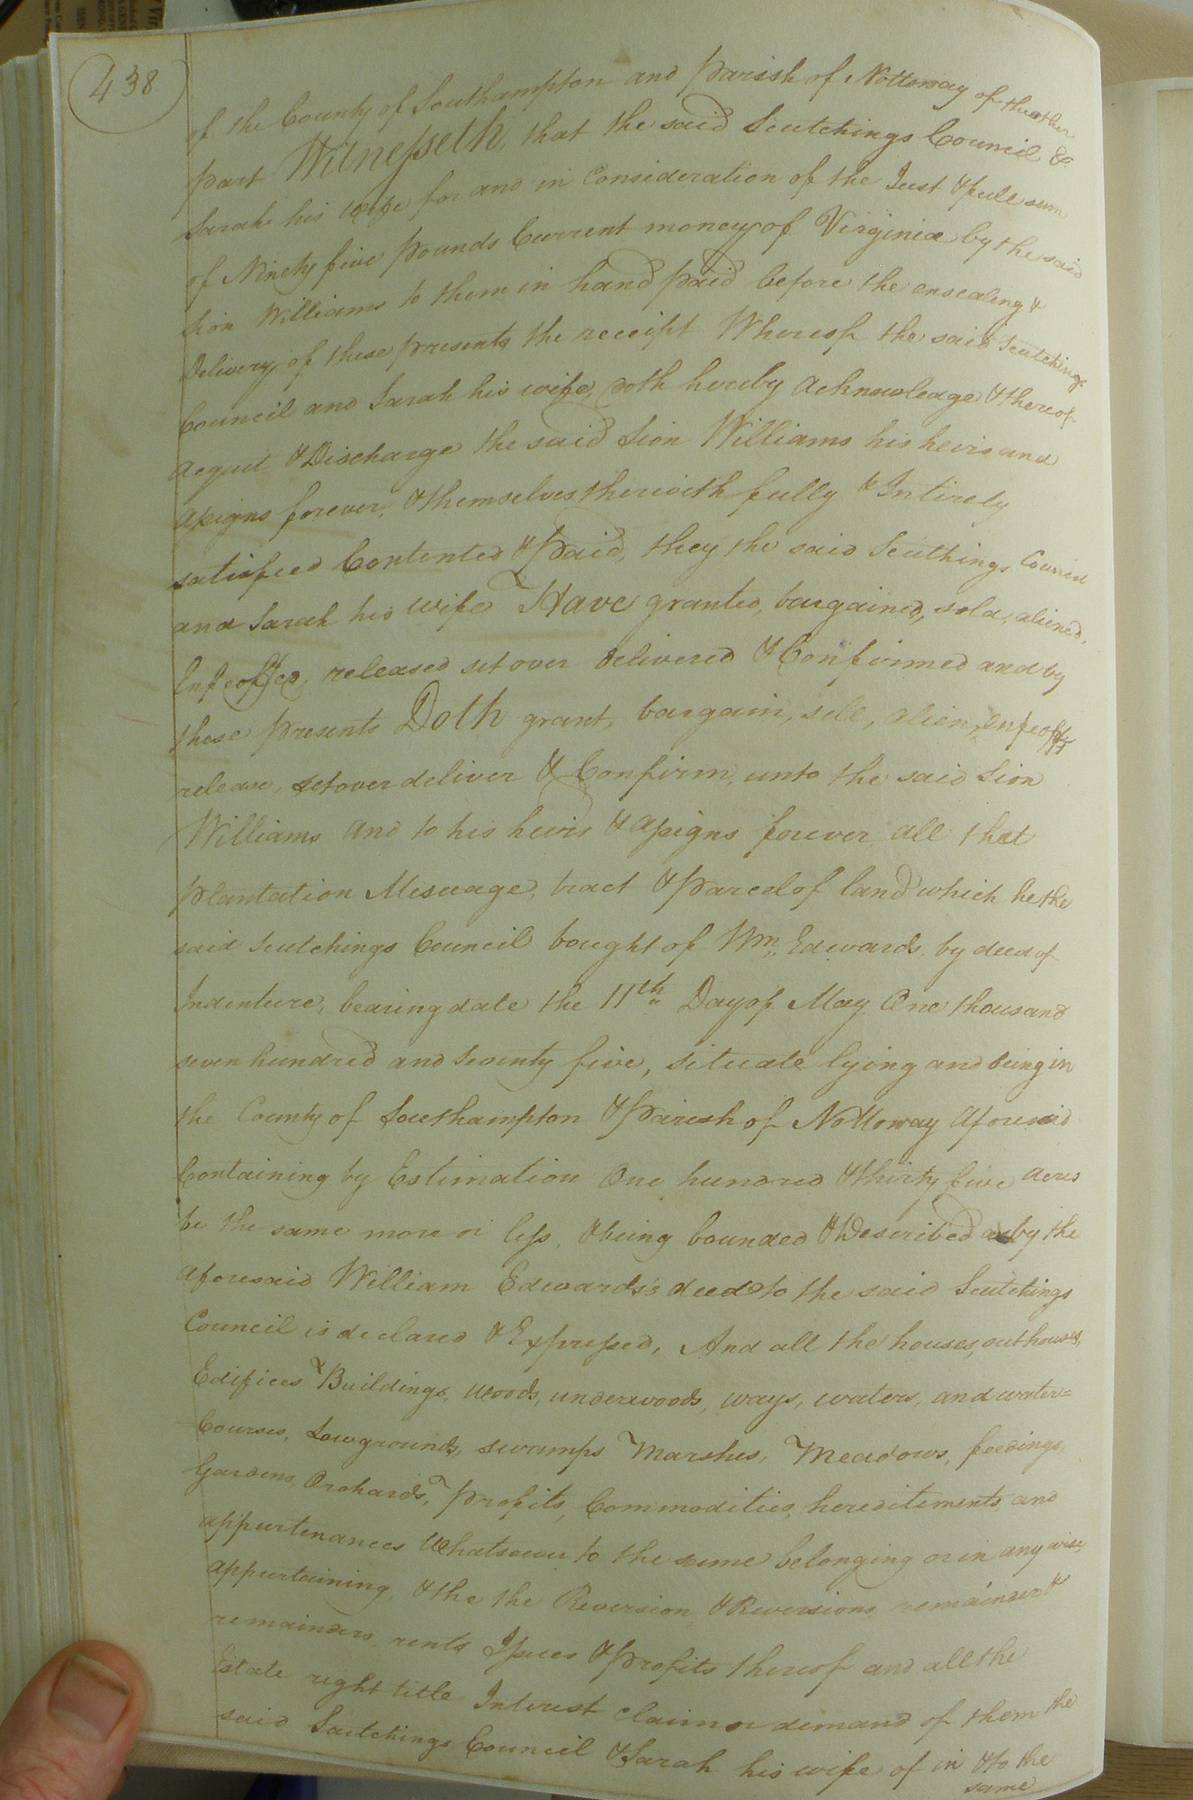 438
of the County of Southampton and parish of Nottoway of the other
part Witnesseth, that the said Scutchings Council &
Sarah his wife for and in Consideration of the Just & full sum
of Ninety five pounds Current money of Virginia by the said
Sion Williams to them in hand paid before the ensealing &
Delivery of these presents the receipt Whereof the said Scutchings
Council and Sarah his wife, doth hereby acknowledge & thereof
acquit & Discharge the said Sion Williams his heirs and
assigns forever, & themselves therewith fully & Intirely
satisfied Contented & paid, they the said Scuthings Council
and Sarah his wife Have granted, bargained, sold, aliened,
Enfeoffed, released setover delivered & Confirmed and by
these presents Doth grant, bargain, sell, alien, enfeoff
release, setover deliver & Confirm, unto the said Sion
Williams and to his heirs & assigns forever all that
plantation Mesuage, tract & parcel of land which he the
said Scutchings Council bought of Wm Edwards by deed of
Indenture, bearing date the 11th Day of May One thousand
seven hundred and seventy five, situate lying and being in
the County of Southampton & parish of Nottoway aforesaid
Containing by Estimation One hundred & thirty five acres
be the same more or less, & being bounded & Described as by the
aforesaid William Edwards's deed to the said Scutchings
Council is declared & Expressed, And all the houses, outhouses,
Edifices & Buildings, woods, underwoods, ways, waters, and water=
Courses, Lowgrounds, swamps Marshes, Meadows, feedings,
Gardens, Orchards, profits, Commodities, hereditements, and
appurtenances Whatsoever to the same belonging or in any wise
appurtaining, & the the Reversion & Reversions remainder &
remainders, rents Issues & profits thereof and all the
Estate right title Interest claim or demand of them the
said Scutchings Council & Sarah his wife of in & to the
same